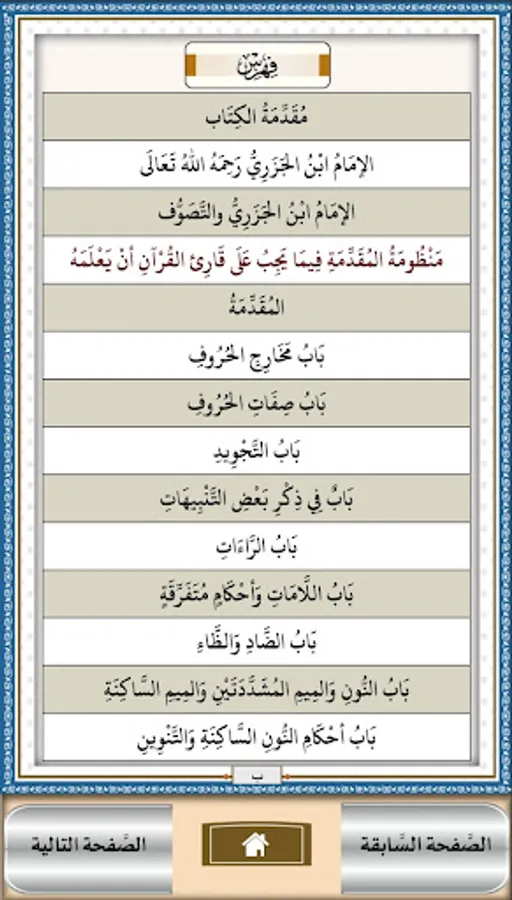 فِهْرِسْ
مُقَدَّمَةُ الكِتَاب
الإمَامُ ابْنُ الجَزَرِيُّ رَحِمَهُ اللهُ تَعَالَى
الإمَامُ ابْنُ الجَزَرِيُّ والتَّصَوُّف
مَنْظُومَةُ المُقَدِّمَةِ فِيمَا يَجِبُ عَلَى قَارِئِ القُرْآنِ أنْ يَعْلَمَهُ
المُقَدِّمَةُ
بَابُ مَخَارِجِ الحُرُوفِ
بَابُ صِفَاتِ الحُرُوفِ
بَابُ التَّجْوِيدِ
بَابٌ فِي ذِكْرِ بَعْضِ التَّنْبِيهَاتِ
بَابُ الرَّاءَاتِ
بَابُ اللَّامَاتِ وَأحْكَامٍ مُتَفَرِّقَةٍ
بَابُ الضَّادِ وَالظَّاءِ
بَابُ النُّونِ وَالمِيمِ المُشَدَّدَتَيْنِ وَالمِيمِ السَّاكِنَةِ
بَابُ أحْكَامِ النُّونِ السَّاكِنَةِ وَالتَّنْوِينِ
ب
الصَّفحة السَّابقة
الصَّفحة التالية